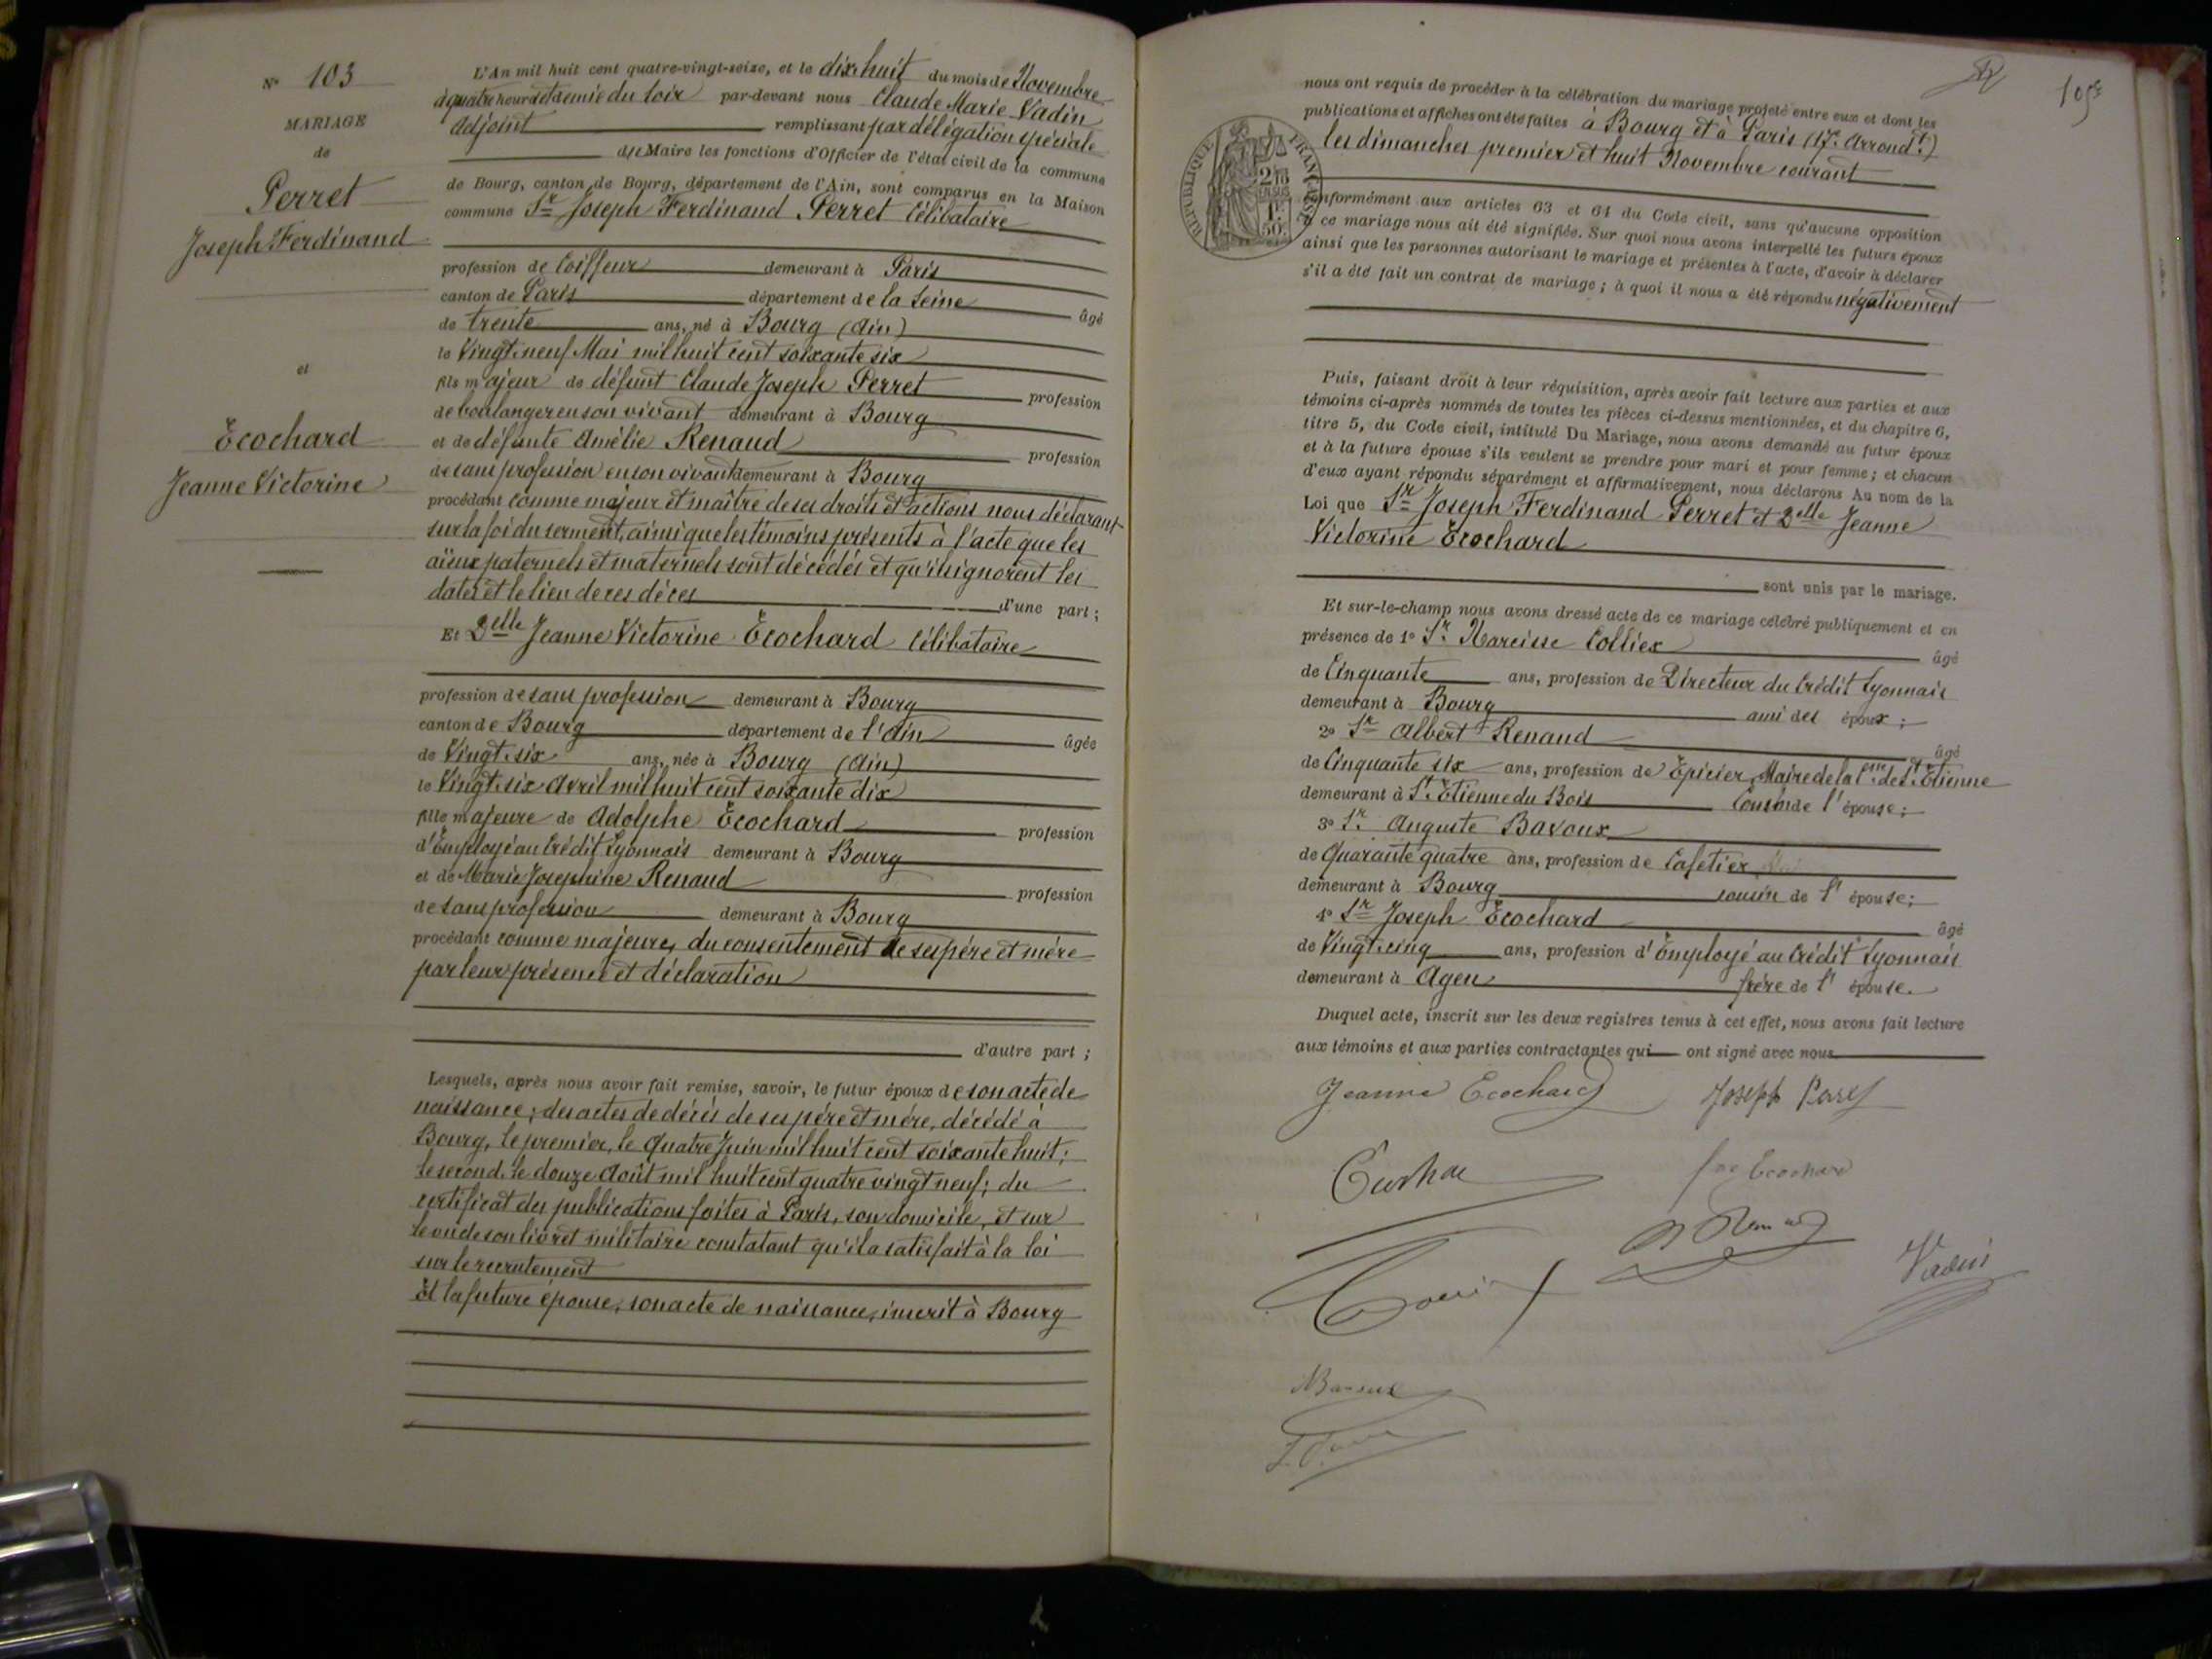 N° 103
MARIAGE
de
Perret
Joseph Ferdinand
et
Ecochard
Jeanne Victorine
L'An mil huit cent quatre-vingt-seize, et le dix huit du mois de Novembre
à quatre heures et demie du soir par-devant nous Claude Marie Vadin
Adjoint remplissant par délégation spéciale
du Maire les fonctions d'Officier de l'état civil de la commune
de Bourg, canton de Bourg, département de l'Ain, sont comparus en la Maison
commune Sr Joseph Ferdinand Perret Célibataire
profession de Coiffeur demeurant à Paris
canton de Paris département de la Seine âgé
de trente ans, né à Bourg (Ain)
le Vingt-neuf Mai mil huit cent soixante six
fils majeur de défunt Claude Joseph Perret profession
de boulanger en son vivant demeurant à Bourg
et de défunte Amélie Renaud profession
de sans profession en son vivant demeurant à Bourg
procédant comme majeur et maître de ses droits et actions nous déclarant
sur la foi du serment, ainsi que les témoins présents à l'acte que les
aïeux paternels et maternels sont décédés et qu'ils ignorent les
dates et le lieu de ces décès d'une part ;
Et Delle Jeanne Victorine Ecochard Célibataire
profession de sans profession demeurant à Bourg
canton de Bourg département de l'Ain âgée
de Vingt-six ans, née à Bourg (Ain)
le Vingt-six Avril mil huit cent soixante dix
fille majeure de Adolphe Ecochard profession
d'Employé au Crédit Lyonnais demeurant à Bourg
et de Marie Josephine Renaud profession
de sans profession demeurant à Bourg
procédant comme majeure, du consentement de ses père et mère
par leur présence et déclaration
d'autre part ;
Lesquels, après nous avoir fait remise, savoir, le futur époux de son acte de
naissance ; des actes de décès de ses père et mère, décédé à
Bourg, le premier, le quatre Juin mil huit cent soixante huit ;
le second, le douze Août mil huit cent quatre vingt neuf ; du
certificat des publications faites à Paris, son domicile, et sur
le vu de son livret militaire constatant qu'il a satisfait à la loi
sur le recrutement
Et la future épouse, son acte de naissance, inscrit à Bourg
105
nous ont requis de procéder à la célébration du mariage projeté entre eux et dont les
publications et affiches ont été faites à Bourg et à Paris (17e Arrondt)
les dimanches premier et huit Novembre courant
RÉPUBLIQUE FRANÇAISE
2/10
EN SUS
1F
50c
conformément aux articles 63 et 64 du Code civil, sans qu'aucune opposition
à ce mariage nous ait été signifiée. Sur quoi nous avons interpellé les futurs époux
ainsi que les personnes autorisant le mariage et présentes à l'acte, d'avoir à déclarer
s'il a été fait un contrat de mariage ; à quoi il nous a été répondu négativement
Puis, faisant droit à leur réquisition, après avoir fait lecture aux parties et aux
témoins ci-après nommés de toutes les pièces ci-dessus mentionnées, et du chapitre 6,
titre 5, du Code civil, intitulé Du Mariage, nous avons demandé au futur époux
et à la future épouse s'ils veulent se prendre pour mari et pour femme ; et chacun
d'eux ayant répondu séparément et affirmativement, nous déclarons Au nom de la
Loi que Sr Joseph Ferdinand Perret et Delle Jeanne
Victorine Ecochard
sont unis par le mariage.
Et sur-le-champ nous avons dressé acte de ce mariage célébré publiquement et en
présence de 1° Sr Narcisse Colliex âgé
de Cinquante ans, profession de Directeur du Crédit Lyonnais
demeurant à Bourg ami des époux ;
2° Sr Albert Renaud âgé
de Cinquante six ans, profession de Epicier, Maire de la Cne de St Etienne
demeurant à St Etienne du Bois Cousin de l'épouse ;
3° Sr Auguste Bavoux
de Quarante quatre ans, profession de Cafetier
demeurant à Bourg cousin de l'épouse ;
4° Sr Joseph Ecochard âgé
de Vingt-cinq ans, profession d'Employé au Crédit Lyonnais
demeurant à Agen frère de l'épouse.
Duquel acte, inscrit sur les deux registres tenus à cet effet, nous avons fait lecture
aux témoins et aux parties contractantes qui ont signé avec nous
Jeanne Ecochard Joseph Perret
Ecochard
Renaud
Vadin